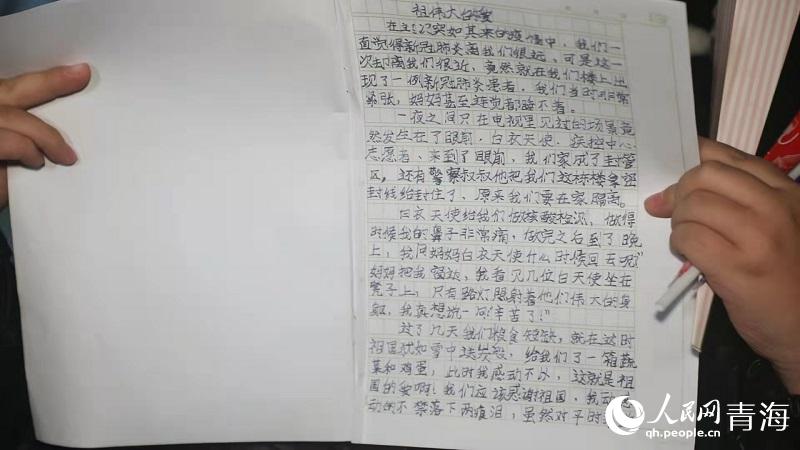 祖伟大的爱
在这次突如其来的疫情中，我们一
直觉得新冠肺炎离我们很远，可是这一
次却离我们很近，竟然就在我们楼上出
现了一例新冠肺炎患者，我们当时非常
紧张，妈妈甚至连觉都睡不着。
一夜之间只在电视里见过的场景竟
然发生在了眼前，白衣天使、疾控中心、
志愿者、来到了眼前，我们家成了封管
区，还有警察叔叔他把我们这栋楼拿密
封线给封住了，原来我们要在家隔离。
白衣天使给我们做核酸检测，做得
时候我的鼻子非常痛，做完之后到了晚
上，我问妈妈白衣天使什么时候回去呢？"
妈妈把我，我看见几位白天使坐在
凳子上，只有路灯照射着他们伟大的身
躯，我真想说一句"辛苦了！"
过了几天我们粮食短缺，就在这时
祖国犹如雪中送炭般，给我们了一箱蔬
菜和鸡蛋，此时我感动不以，这就是祖
国的爱啊！我们应该感谢祖国，我
动的不禁落下两痕泪，虽然对平时
人民网 青海
qh.people.cn